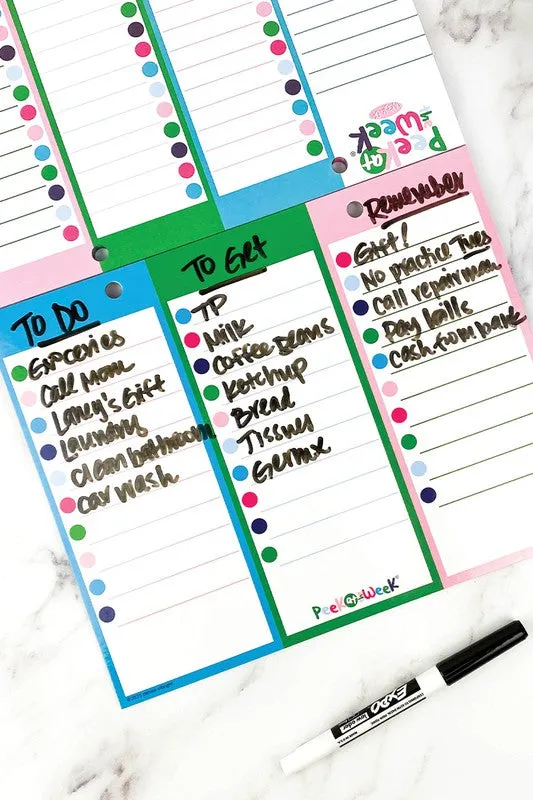 Peek at the Week
To Do
Groceries
Call Mom
Laney's Gift
Laundry
clean bathroom
car wash
To Get
TP
Milk
Coffee Beans
Ketchup
Bread
Tissues
Germx
Peek at the Week
Remember
Gift!
No practice Tues
Call repair man
Pay bills
cash from bank
EXPO
low odor